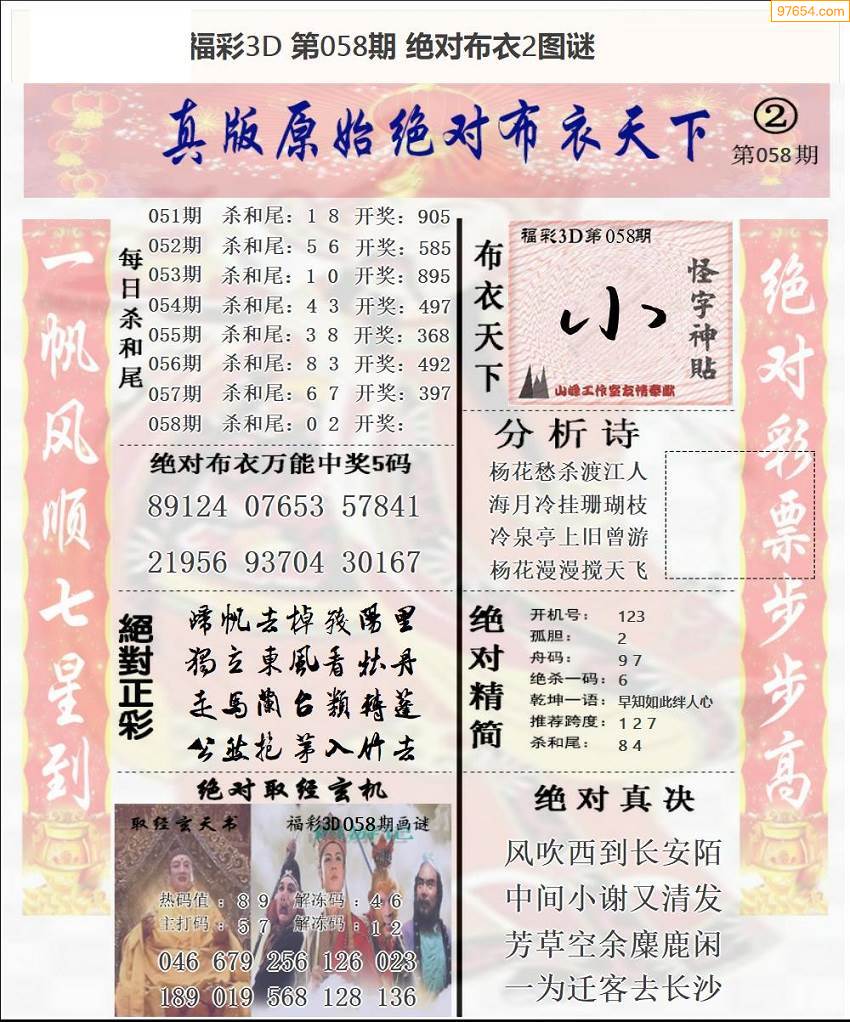 97654.com
福彩3D 第058期 绝对布衣2图谜
真版原始绝对布衣天下
②
第058期
一帆风顺七星到
每日杀和尾
051期 杀和尾：1 8 开奖：905
052期 杀和尾：5 6 开奖：585
053期 杀和尾：1 0 开奖：895
054期 杀和尾：4 3 开奖：497
055期 杀和尾：3 8 开奖：368
056期 杀和尾：8 3 开奖：492
057期 杀和尾：6 7 开奖：397
058期 杀和尾：0 2 开奖：
绝对布衣万能中奖5码
89124 07653 57841
21956 93704 30167
絕對正彩
啼帆去掉發陽里
獨立東風看牡丹
走馬蘭台類轉蓬
公然抱茅入竹去
绝对取经玄机
取经玄天书
福彩3D058期画谜
热码值：8 9 解冻码：4 6
主打码：5 7 解冻码：1 2
046 679 256 126 023
189 019 568 128 136
布衣天下
福彩3D第058期
小
怪字神貼
山峰工作室友情奉献
分析诗
杨花愁杀渡江人
海月冷挂珊瑚枝
冷泉亭上旧曾游
杨花漫漫搅天飞
绝对精简
开机号： 123
孤胆： 2
舟码： 9 7
绝杀一码：6
乾坤一语：早知如此绊人心
推荐跨度：1 2 7
杀和尾： 8 4
绝对真决
风吹西到长安陌
中间小谢又清发
芳草空余麋鹿闲
一为迁客去长沙
绝对彩票步步高